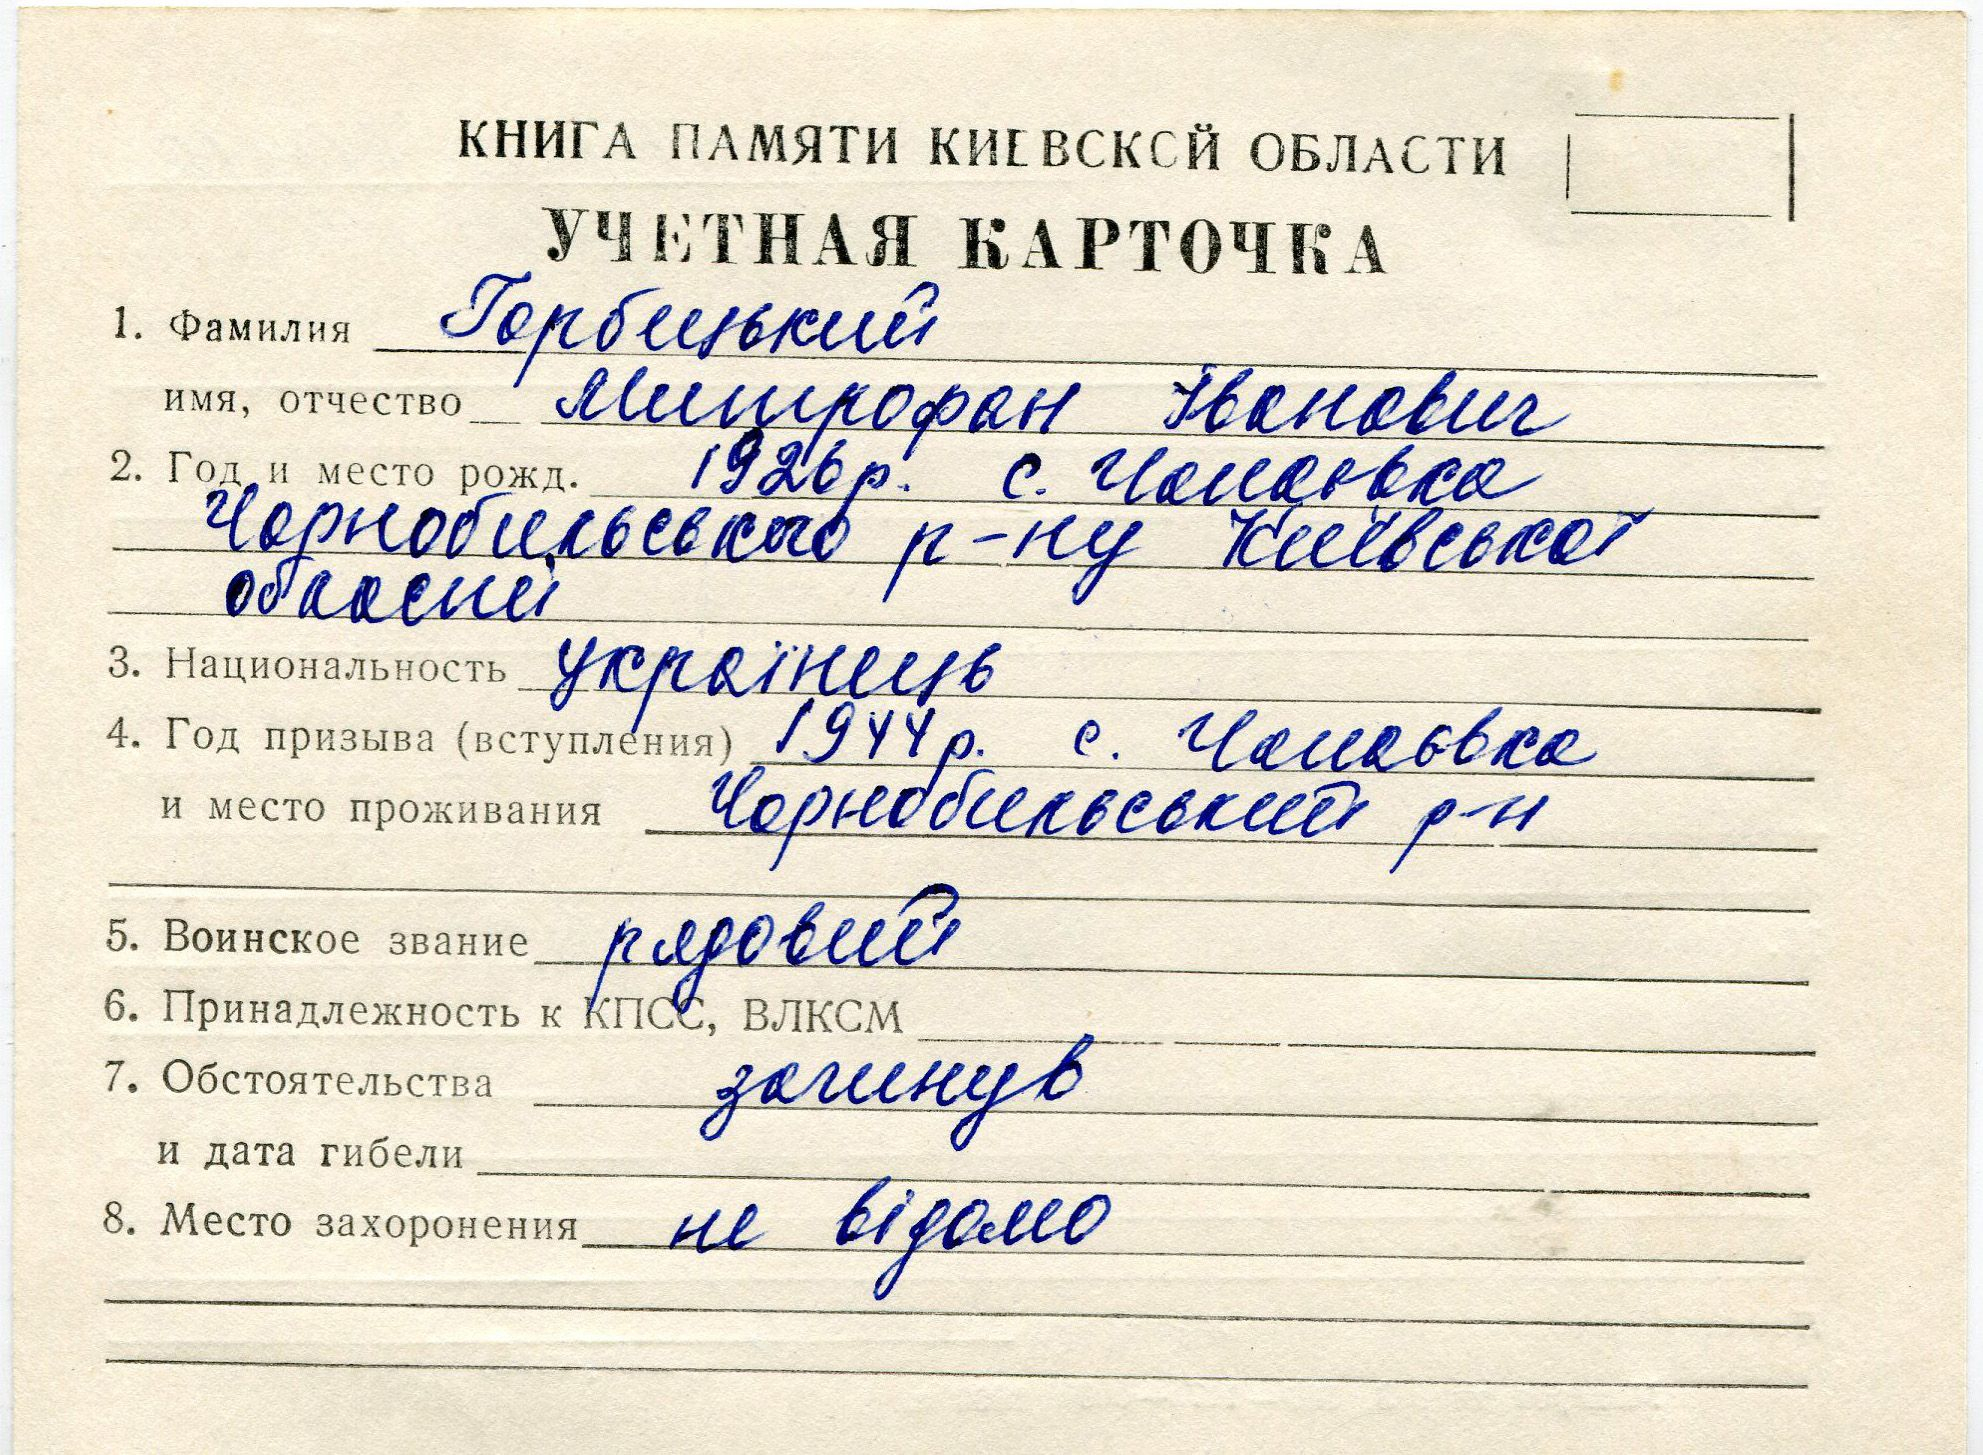 КНИГА ПАМЯТИ КИЕВСКОЙ ОБЛАСТИ
УЧЕТНАЯ КАРТОЧКА
1. Фамилия Горбицький
имя, отчество Митрофан Іванович
2. Год и место рожд. 1926 р. с. Чапаєвка
Чорнобильського р-ну Київської
області
3. Национальность українець
4. Год призыва (вступления) 1944 р. с. Чапаєвка
и место проживания Чорнобильський р-н
5. Воинское звание рядовий
6. Принадлежность к КПСС, ВЛКСМ
7. Обстоятельства загинув
и дата гибели
8. Место захоронения не відомо